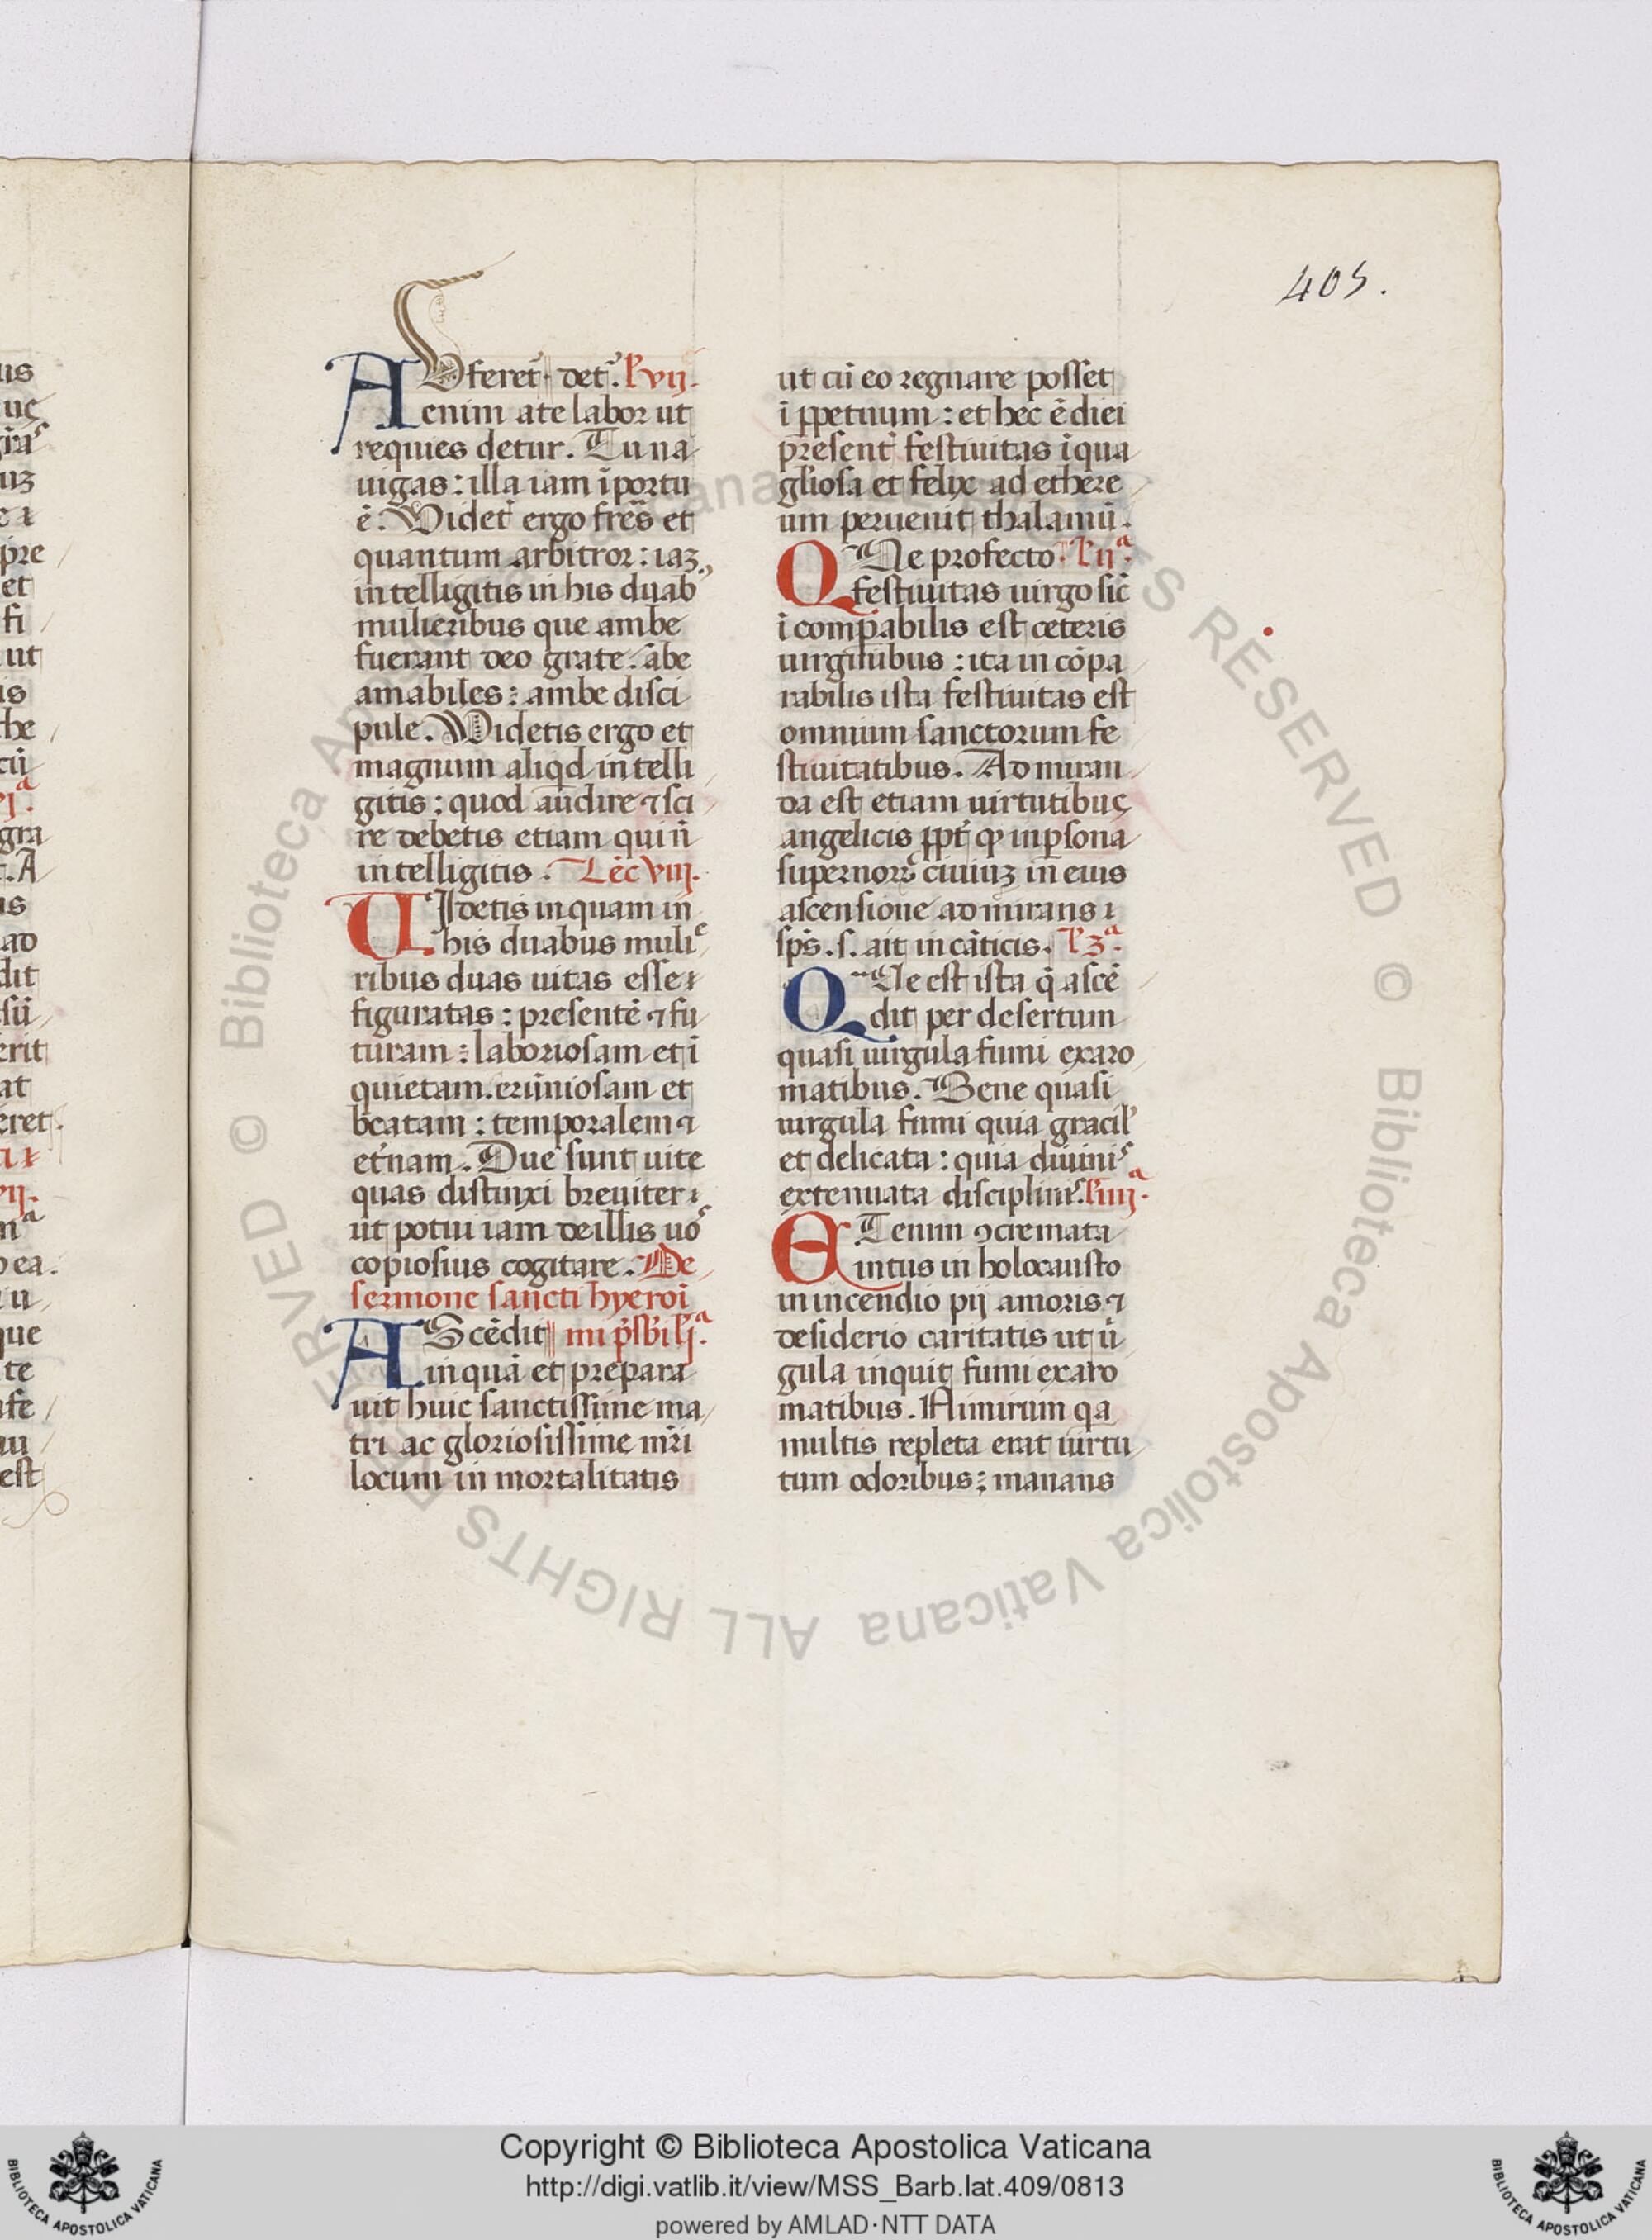 405.
Aufferet̉. det̉. l'. vij.
enim a te labor ut
requies detur. Tu na
uigas: illa iam ī portu
ē. Videt̉ ergo fr̄es et
quantum arbitror: iaꝫ
intelligitis in his duab'
mulieribus que ambe
fuerant deo grate. ābe
amabiles: ambe disci
pule. Videtis ergo et
magnum aliqd intelli
gitis: quod audire ⁊ sci
re debetis etiam qui n̄
intelligitis. Lec̄ viij.
VIdetis inquam in
his duabus mulie
ribus duas uitas esse
figuratas: presentē ⁊ fu
turam: laboriosam et ī
quietam. erūniosam et
beatam: temporalem ⁊
et̉nam. Due sunt uite
quas distinxi breuiter:
ut potui iam de illis uos
copiosius cogitare. De
sermone sancti hyeroī
AScēdit mi p̄sb̄i l'. j.ª
inquā et prepara
uit huic sanctissime ma
tri ac gloriosissime m̄ri
locum in mortalitatis
ut cū eo regnare posset
ī ꝑpetuum: et hec ē diei
present̉ festiuitas ī qua
gl̄iosa et felix ad ethere
um peruenit thalamū.
QUe profecto. l'. ij.ª
festiuitas uirgo sic̄
īcomꝑabilis est ceteris
uirginibus: ita in cōpa
rabilis ista festiuitas est
omnium sanctorum fe
stiuitatibus. Admiran
da est etiam uirtutibus
angelicis ꝓpt̉ ꝙ in ꝑsona
supernorꝝ ciuiuꝫ in eius
ascensione admirans
sp̄s. s. ait in cāticis. l'. 3.ª
QUe est ista q̄ ascē
dit per desertum
quasi uirgula fumi ex aro
matibus. Bene quasi
uirgula fumi quia gracil'
et delicata: quia diuinis
extenuata disciplinis. l'. iiij.ª
ET enim ꝯcremata
intus in holocausto
in incendio pij amoris ⁊
desiderio caritatis ut ū
gula inquit fumi ex aro
matibus. Nimirum qa
multis repleta erat uirtu
tum odoribus: manans
Copyright © Biblioteca Apostolica Vaticana
http://digi.vatlib.it/view/MSS_Barb.lat.409/0813
powered by AMLAD·NTT DATA